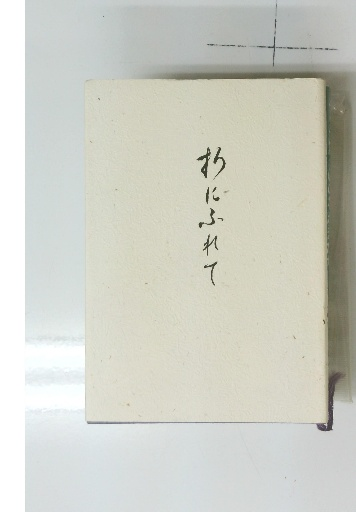 折にふれて